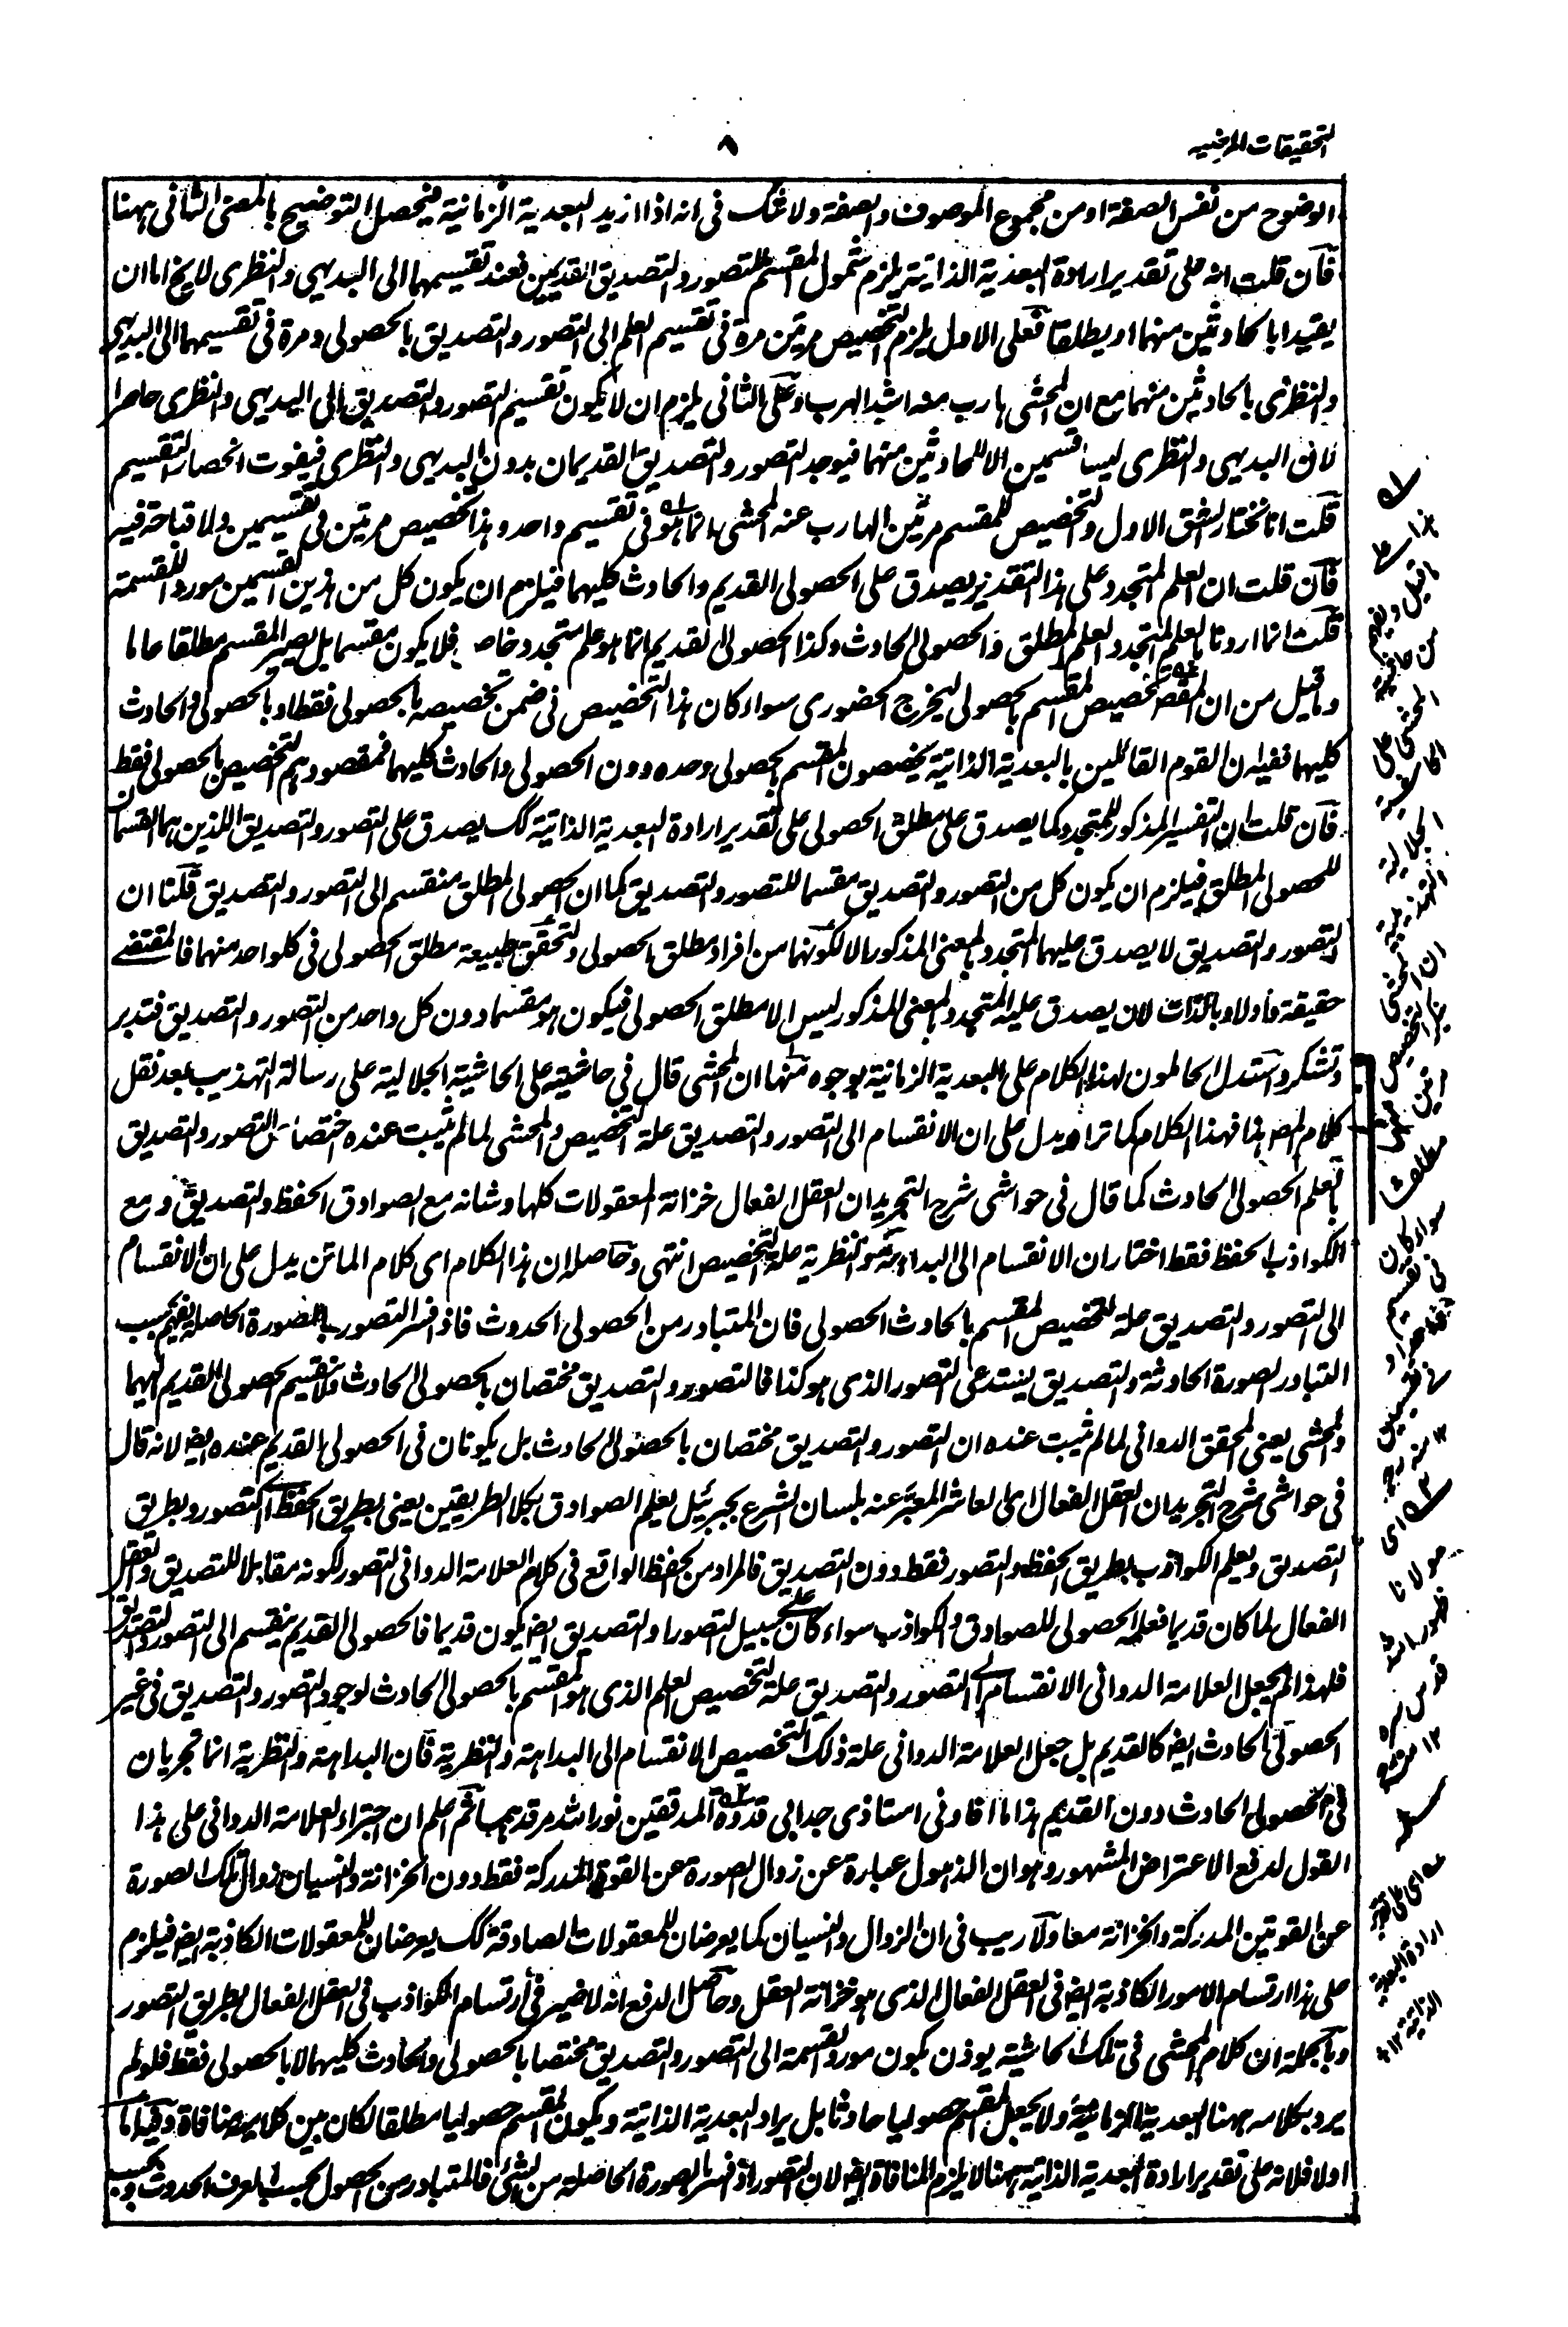 التحقيقات المرضية
٨
الوضوح من نفس الصفة او من مجموع الموصوف والصفة ولا شك فى انه اذا اريد البعدية الزمانية فيحصل التوضيح بالمعنى الثانى ههنا
فان قلت انه على تقدير ارادة البعدية الذاتية يلزم شمول المقسم للتصور والتصديق القديمين فعند تقسيمهما الى البديهى والنظرى لا يخ اما ان
يقيدا بالحادثين منهما او يطلقا فعلى الاول يلزم التخصيص مرتين مرة فى تقسيم العلم الى التصور والتصديق بالحصولى ومرة فى تقسيمهما الى البديهى
والنظرى بالحادثين منهما مع ان المحشى هارب منه اشد الهرب وعلى الثانى يلزم ان لا يكون تقسيم التصور والتصديق الى البديهى والنظرى حاصرا
لان البديهى والنظرى ليسا قسمين الا للحادثين منهما فيوجد التصور والتصديق القديمان بدون البديهى والنظرى فيفوت انحصار التقسيم
قلت انا نختار الشق الاول والتخصيص للمقسم مرتين الهارب عنه المحشى انما هو فى تقسيم واحد وهذا تخصيص مرتين فى تقسيمين ولا قباحة فيه
فان قلت ان العلم المتجدد على هذا التقدير يصدق على الحصولى القديم والحادث كليهما فيلزم ان يكون كل من هذين القسمين موردا للقسمة
قلت انما اردنا بالعلم المتجدد العلم المطلق والحصولى الحادث وكذا الحصولى القديم انما هو علم متجدد خاص فلا يكون مقسما بل يصير المقسم مطلقا عاما
وما قيل من ان المقص تخصيص المقسم بالحصولى ليخرج الحضورى سواء كان هذا التخصيص فى ضمن تخصيصه بالحصولى فقط او بالحصولى والحادث
كليهما ففيه ان القوم القائلين بالبعدية الذاتية يخصصون المقسم بالحصولى وحده دون الحصولى والحادث كليهما فمقصودهم التخصيص بالحصولى فقط
فان قلت ان التفسير المذكور للمتجدد كما يصدق على مطلق الحصولى على تقدير ارادة البعدية الذاتية كك يصدق على التصور والتصديق اللذين هما القسمان
للحصولى المطلق فيلزم ان يكون كل من التصور والتصديق مقسما للتصور والتصديق كما ان الحصولى المطلق منقسم الى التصور والتصديق قلنا ان
التصور والتصديق لا يصدق عليهما المتجدد بالمعنى المذكور الا لكونهما من افراد مطلق الحصولى ولتحقق طبيعة مطلق الحصولى فى كل واحد منهما فالمقتضى
حقيقة واولا وبالذات لان يصدق عليه المتجدد بالمعنى المذكور ليس الا مطلق الحصولى فيكون هو مقسما دون كل واحد من التصور والتصديق فتدبر
وتشكر واستدل الحاملون لهذا الكلام على البعدية الزمانية بوجوه منها ان المحشى قال فى حاشيته على الحاشية الجلالية على رسالة التهذيب بعد نقل
كلام المص هذا فهذا الكلام كما تراه يدل على ان الانقسام الى التصور والتصديق علة التخصيص والمحشى لما لم يثبت عنده اختصاص التصور والتصديق
بالعلم الحصولى الحادث كما قال فى حواشى شرح التجريد ان العقل الفعال خزانة المعقولات كلها وشانه مع الصوادق الحفظ والتصديق ومع
الكواذب الحفظ فقط اختار ان الانقسام الى البداهة والنظرية علة التخصيص انتهى وحاصله ان هذا الكلام اى كلام الماتن يدل على ان الانقسام
الى التصور والتصديق علة لتخصيص المقسم بالحادث الحصولى فان المتبادر من الحصولى الحدوث فاذا فسر التصور بالصورة الحاصلة يفهم بسبب
التبادر الصورة الحادثة والتصديق يستدعى التصور الذى هو كذا فالتصور والتصديق مختصان بالحصولى الحادث ولا تقسيم الحصولى القديم اليهما
والمحشى يعنى المحقق الدوانى لما لم يثبت عنده ان التصور والتصديق مختصان بالحصولى الحادث بل يكونان فى الحصولى القديم عنده ايض لانه قال
فى حواشى شرح التجريد ان العقل الفعال اى العاشر المعبر عنه بلسان الشرع بجبرئيل يعلم الصوادق بكلا الطريقين يعنى بطريق الحفظ اى التصور وبطريق
التصديق ويعلم الكواذب بطريق الحفظ والتصور فقط دون التصديق فالمراد من الحفظ الواقع فى كلام العلامة الدوانى التصور لكونه مقابلا للتصديق والعقل
الفعال لما كان قديما فعلمه الحصولى للصوادق والكواذب سواء كان على سبيل التصور او التصديق ايض يكون قديما فالحصولى القديم ينقسم الى التصور والتصديق
فلهذا لم يجعل العلامة الدوانى الانقسام الى التصور والتصديق علة لتخصيص العلم الذى هو المقسم بالحصولى الحادث لوجود التصور والتصديق فى غير
الحصولى الحادث ايض كالقديم بل جعل العلامة الدوانى علة ذلك التخصيص الانقسام الى البداهة والنظرية فان البداهة والنظرية انما تجريان
فى الحصولى الحادث دون القديم هذا ما افادنى استاذى جدابى قدوة المدققين نور الله مرقدهما ثم اعلم ان اجتراء العلامة الدوانى على هذا
القول لدفع الاعتراض المشهور وهو ان الذهول عبارة عن زوال الصورة عن القوة المدركة فقط دون الخزانة والنسيان زوال تلك الصورة
عن القوتين المدركة والخزانة معا ولا ريب فى ان الزوال والنسيان كما يعرضان للمعقولات الصادقة كك يعرضان للمعقولات الكاذبة ايض فيلزم
على هذا ارتسام الامور الكاذبة ايض فى العقل الفعال الذى هو خزانة العقل وحاصل الدفع انه لا ضير فى ارتسام الكواذب فى العقل الفعال بطريق التصور
وبالجملة ان كلام المحشى فى تلك الحاشية يوذن بكون مورد القسمة الى التصور والتصديق مختصا بالحصولى والحادث كليهما لا بالحصولى فقط فلو لم
يرد بكلامه ههنا البعدية الزمانية ولا يجعل المقسم حصوليا حادثا بل يراد البعدية الذاتية ويكون المقسم حصوليا مطلقا لكان بين كلاميه منافاة وفيه اما
اولا فلانه على تقدير ارادة البعدية الذاتية ههنا لا يلزم المنافاة ايض لان التصور اذا فسر بالصورة الحاصلة من الشئ فالمتبادر من الحصول بحسب العرف الحدوث وبحسب
من حاشية
المحشى على
الحاشية
الجلالية
مطلقا
سواء كان
فى تقسيم
واحد او
تقسيمين
١٢ منه
اى
مولانا
ظهور الله
قدس سره
١٢ منه
اى على تقدير
ارادة البعدية
الذاتية ١٢